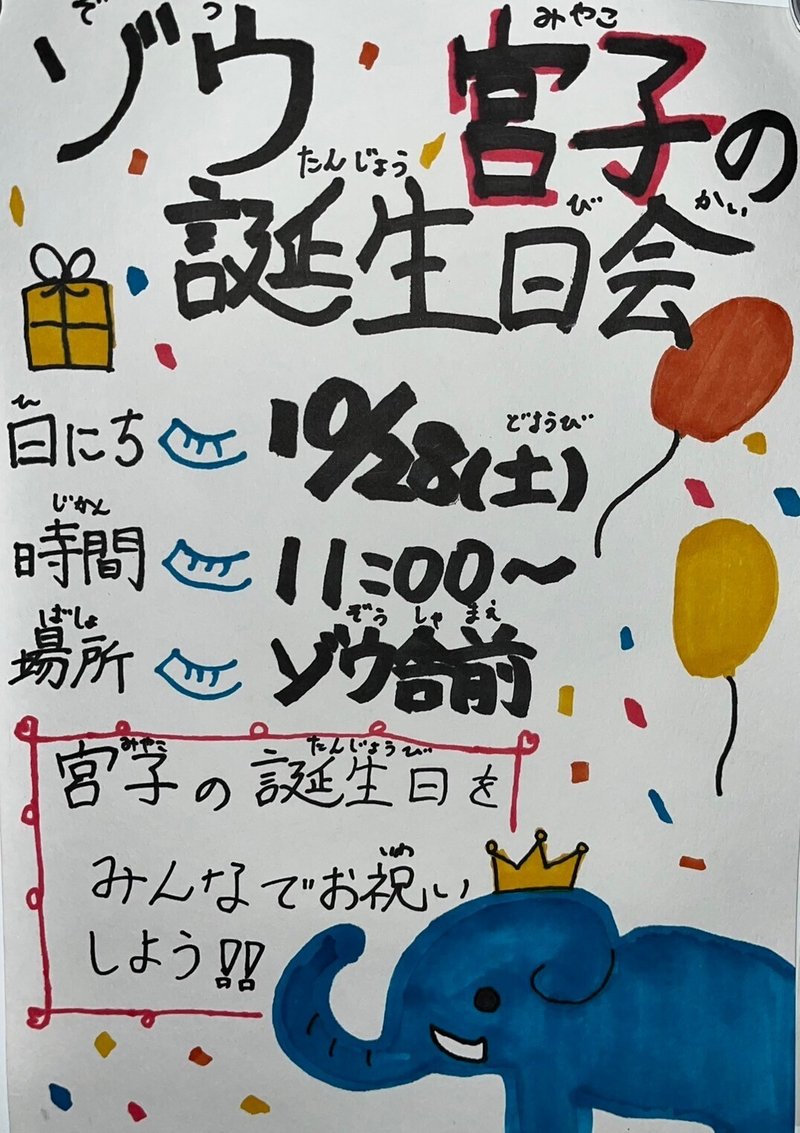 ゾウ 宮子の
誕生日会
日にち 10/28(土)
時間 11:00〜
場所 ゾウ舎前
宮子の誕生日を
みんなでお祝い
しよう!!